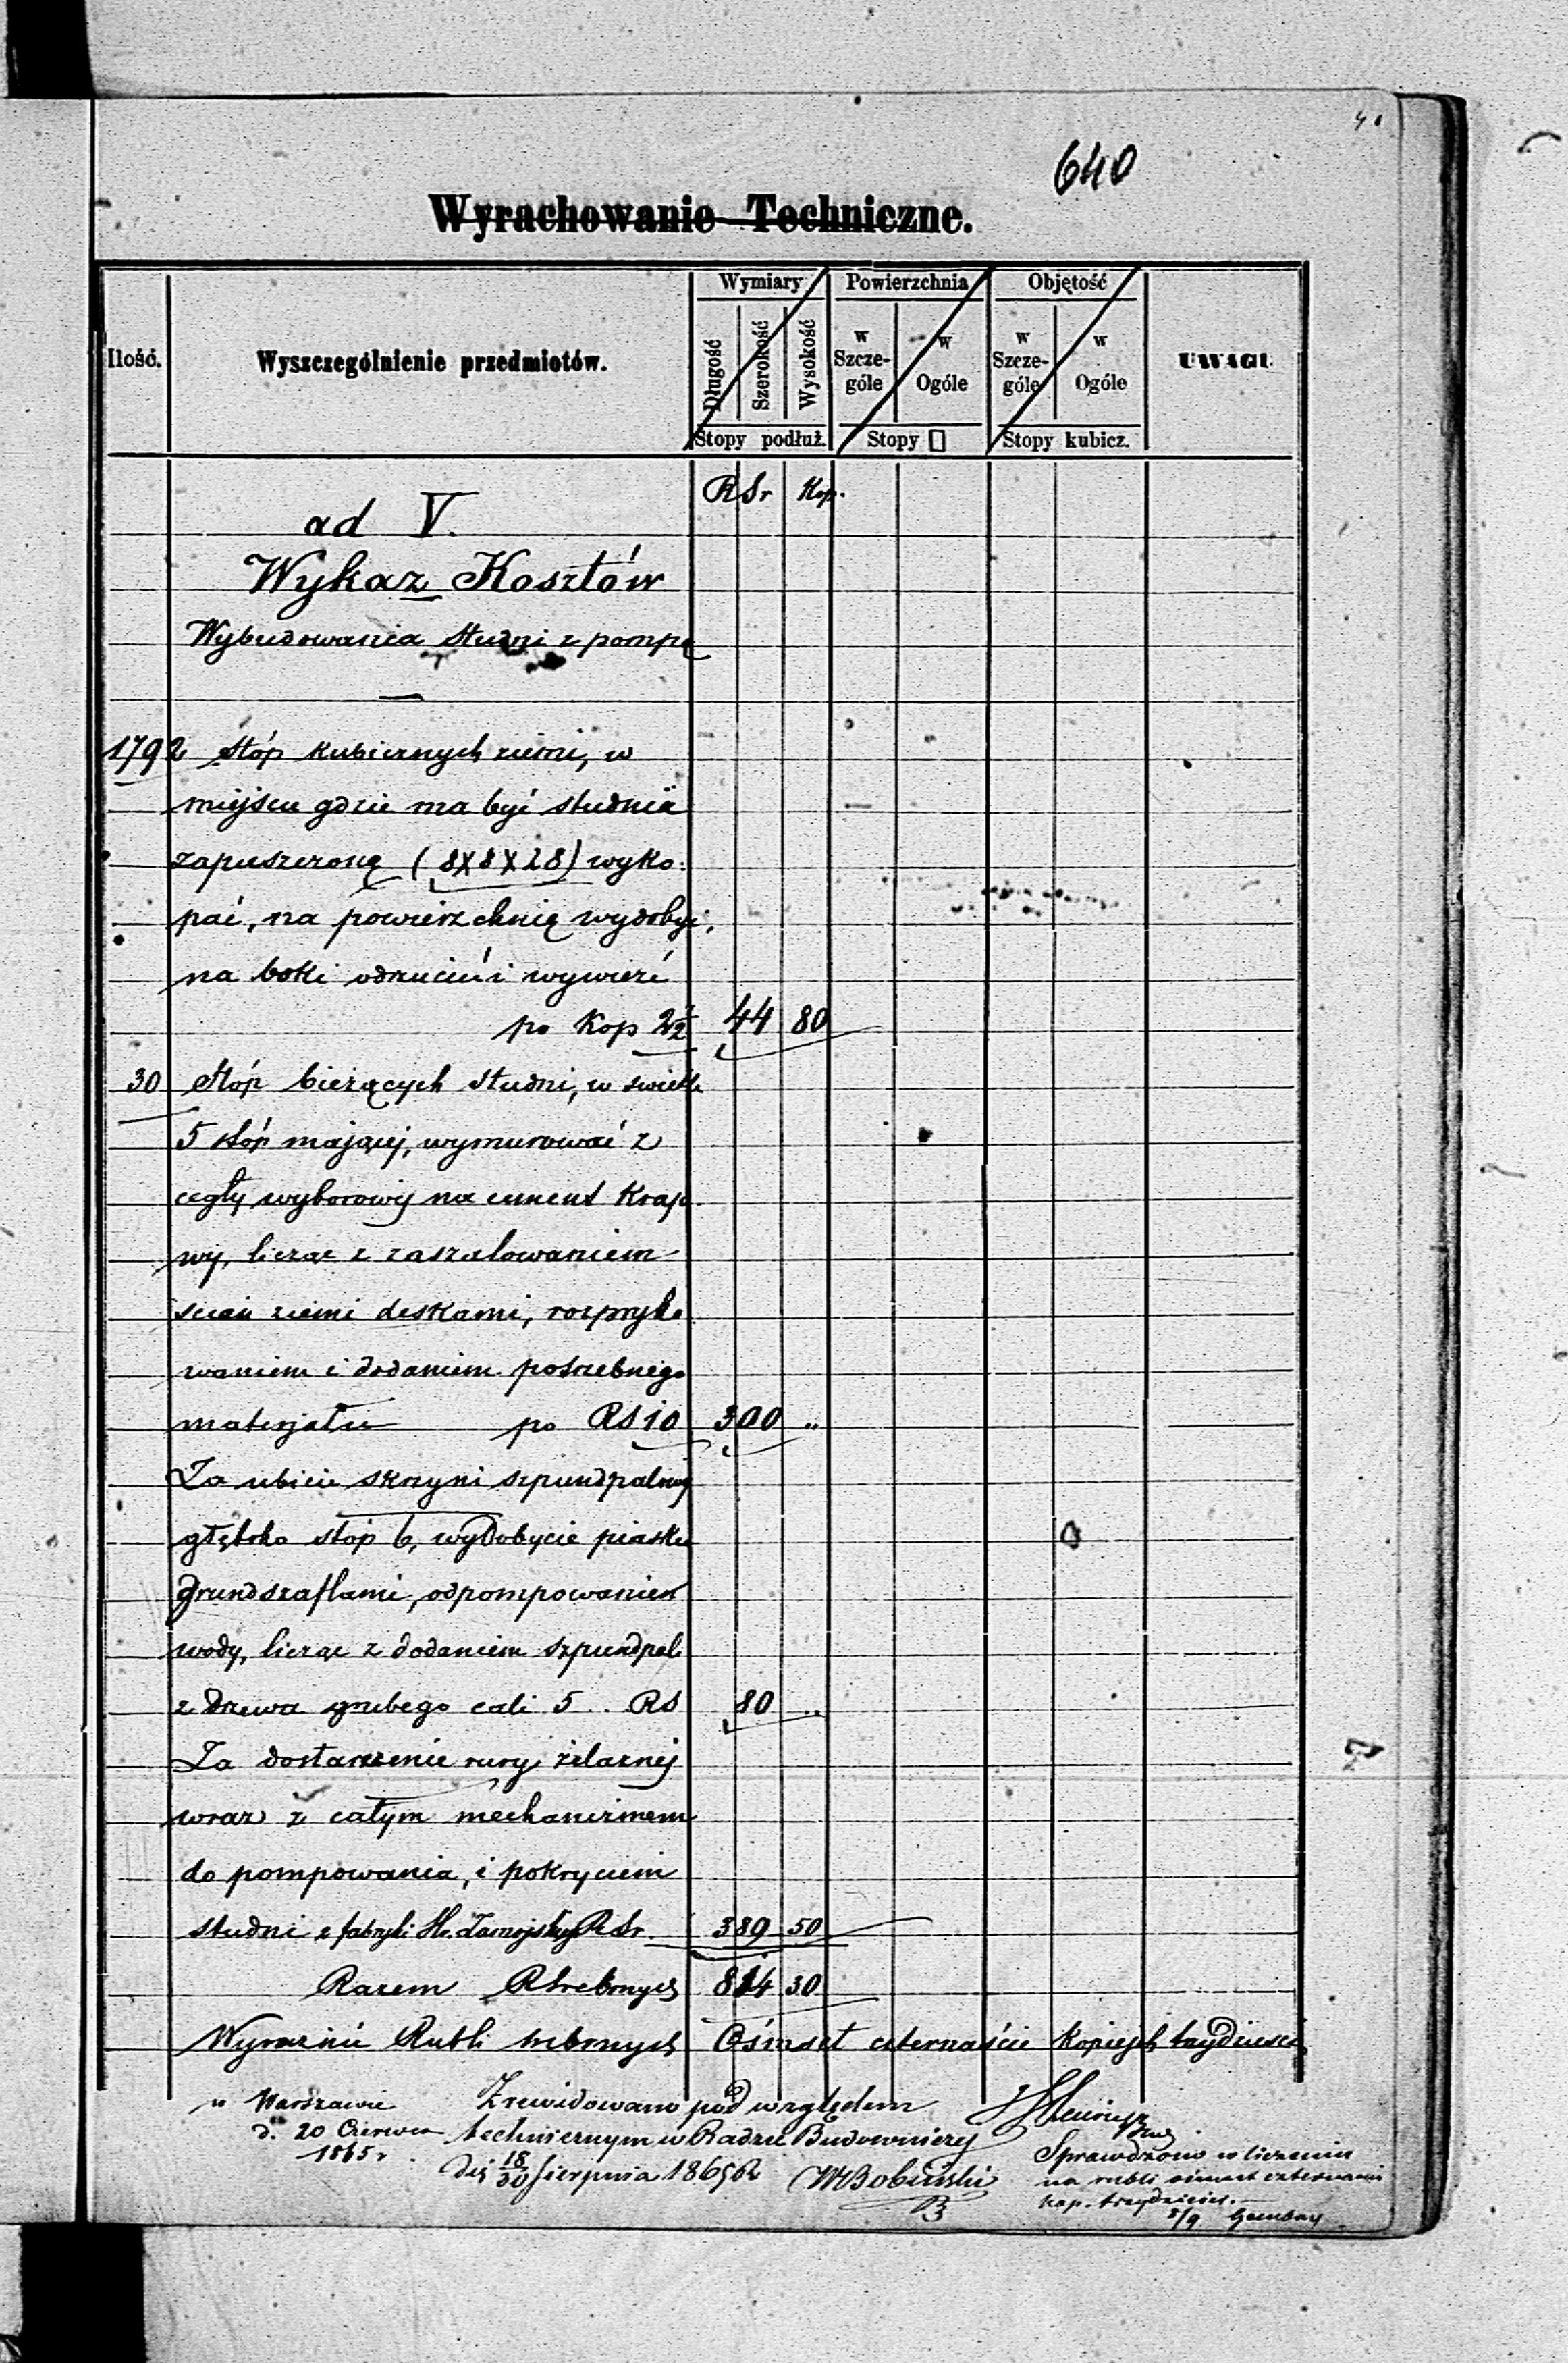 640
Wyrachowanie Techniczne.
Ilość.
Wyszczególnienie przedmiotów.
Wymiary
Długość
Szerokość
Wysokość
Stopy podłuż.
Powierzchnia
w Szcze-góle
w Ogóle
Stopy □
Objętość
w Szcze-góle
w Ogóle
Stopy kubicz.
UWAGI.
RSr Kop.
ad V.
Wykaz Kosztów
Wybudowania studni z pompą
1792 Stóp kubicznych ziemi, w
miejscu gdzie ma być studnia
zapuszczoną (8X8X28) wyko:
pać, na powierzchnię wydobyć,
na boki odrzucić i wywieść
po Kop 2½ 44 80
30 Stóp bieżących studni, w świetle
5 stóp mającej, wymurować z
cegły wyborowej na cement Krajo
wy, licząc z zaszalowaniem
ścian ziemi deskami, rozpryko
waniem i dodaniem potrzebnego
materjału po RS 10 300 ..
Za ubicie skrzyni szpundpalnej
głęboko stóp 6, wydobycie piasku
grundszaflami, odpompowaniem
wody, licząc z dodaniem szpundpal
z drzewa grubego cali 5 .. RS 80 ..
Za dostarczenie rury żelaznej
wraz z całym mechanizmem
do pompowania, i pokryciem
studni z fabryki Hr. Zamojskiego RSr. 389 50
Razem RSrebrnych 814 30
Wyraźnie Rubli srebrnych Ośmset czternaście Kopiejek trzydzieści
w Warszawie
d. 20 Czerwca
1865 r.
Zrewidowano pod względem
technicznym w Radzie Budowniczej
Dnia 18/30 Sierpnia 1865 R
WBobiński
Sprawdzono w liczeniu
na rubli ośmset czternaście
kop. trzydzieści.
5/9